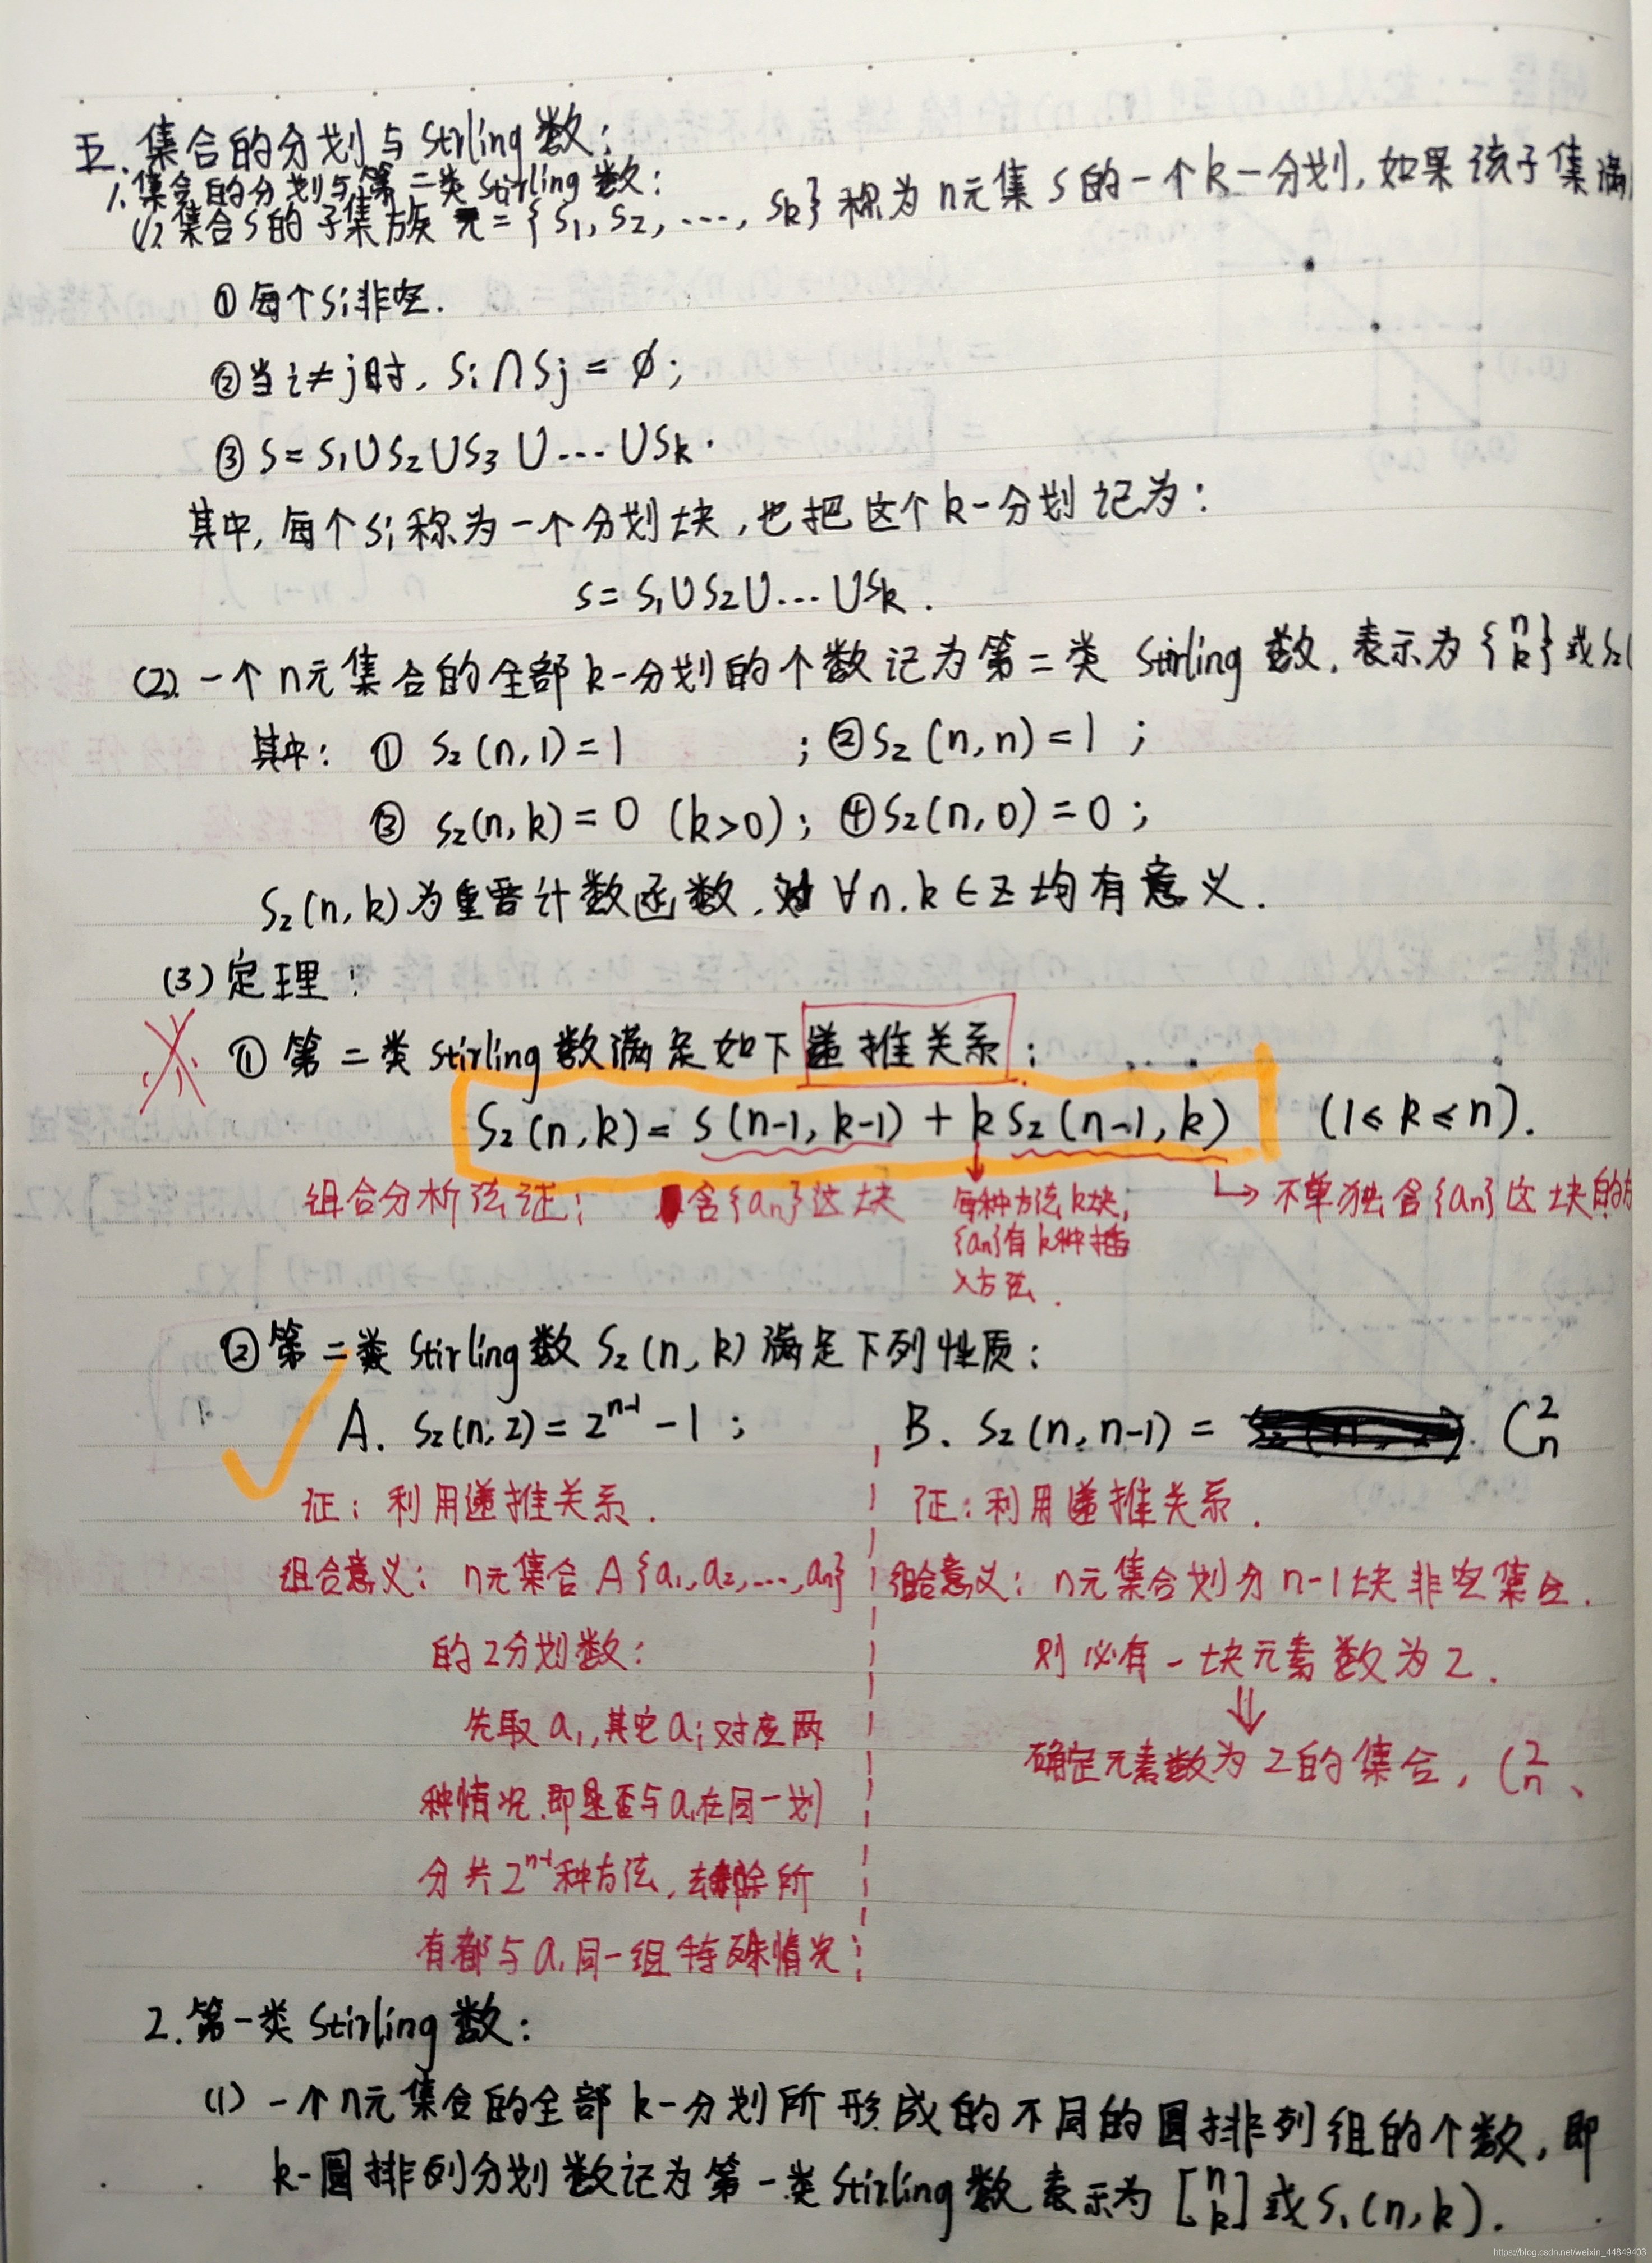 五.集合的分划与Stirling数:
1.集合的分划与第二类Stirling数:
(1).集合S的子集族π={S₁,S₂,…,Sₖ}称为n元集S的一个k-分划,如果该子集满
①每个Sᵢ非空.
②当i≠j时,Sᵢ∩Sⱼ=∅;
③S=S₁∪S₂∪S₃∪…∪Sₖ.
其中,每个Sᵢ称为一个分划块,也把这个k-分划记为:
S=S₁∪S₂∪…∪Sₖ.
(2).一个n元集合的全部k-分划的个数记为第二类Stirling数.表示为{n k}或S₂(
其中: ① S₂(n,1)=1 ;②S₂(n,n)=1 ;
③ S₂(n,k)=0 (k>0); ④S₂(n,0)=0;
S₂(n,k)为重要计数函数.对∀n.k∈Z均有意义.
(3)定理:
①第二类Stirling数满足如下递推关系:
S₂(n,k)=S(n-1,k-1)+kS₂(n-1,k) (1≤k≤n).
组合分析法证: 含{aₙ}这块 每种方法k块, → 不单独含{aₙ}这块的方
{aₙ}有k种插
入方法.
②第二类Stirling数S₂(n,k)满足下列性质:
A. S₂(n,2)=2ⁿ⁻¹-1; B. S₂(n,n-1)= C²ₙ
证:利用递推关系. 证:利用递推关系.
组合意义: n元集合A{a₁,a₂,…,aₙ} 组合意义: n元集合划分n-1块非空集合.
的2分划数: 则必有一块元素数为2.
先取a₁,其它aᵢ对应两 ⇓
种情况.即是否与a₁在同一划 确定元素数为2的集合, C²ₙ、
分共2ⁿ⁻¹种方法,去除所
有都与a₁同一组特殊情况;
2.第一类Stirling数:
(1)一个n元集合的全部k-分划所形成的不同的圆排列组的个数,即
k-圆排列分划数记为第一类Stirling数表示为[n k]或S₁(n,k).
https://blog.csdn.net/weixin_44849403